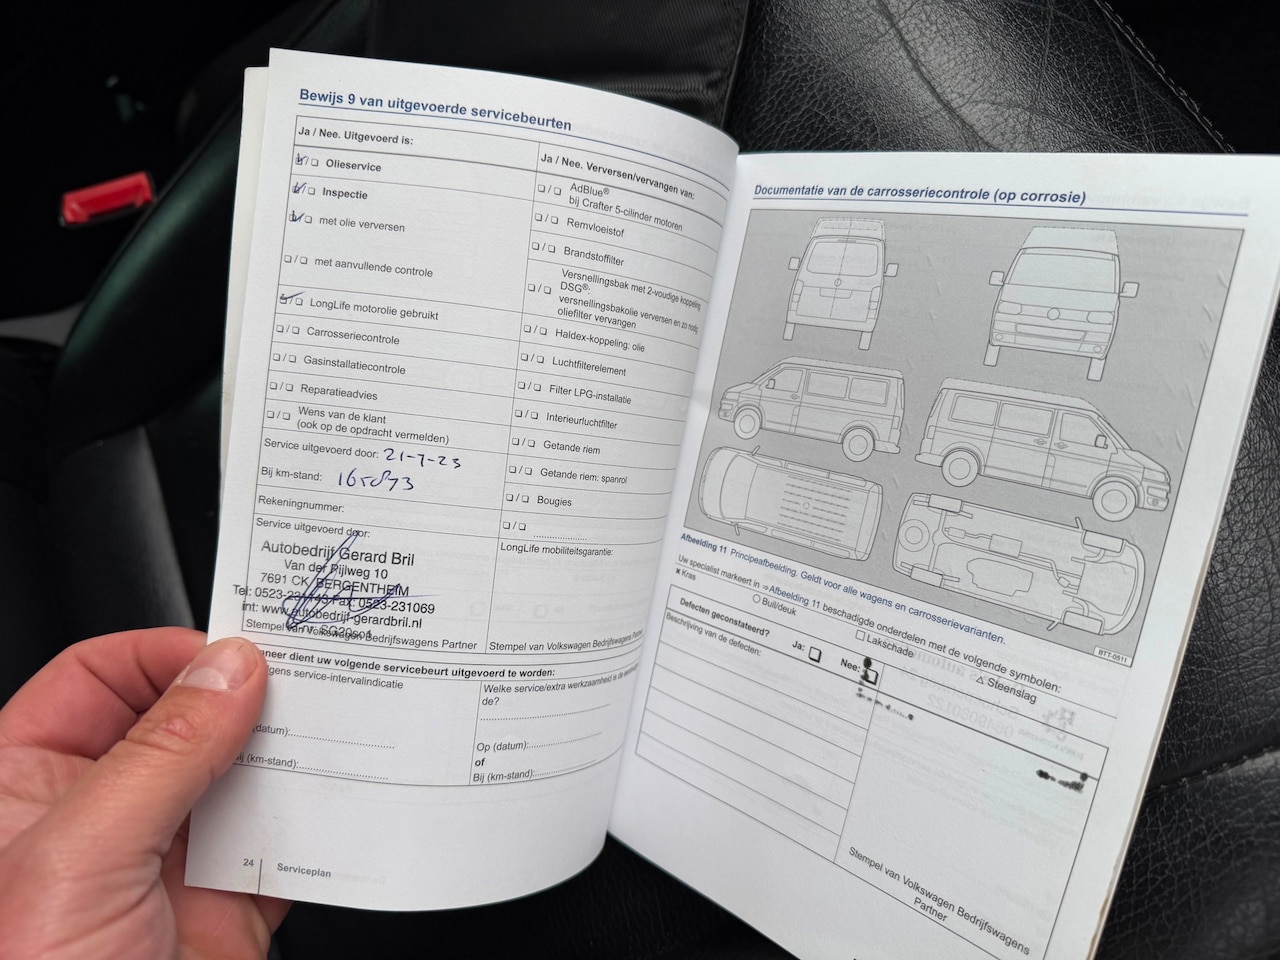 Bewijs 9 van uitgevoerde servicebeurten
Ja / Nee. Uitgevoerd is:
Olieservice
Inspectie
met olie verversen
met aanvullende controle
LongLife motorolie gebruikt
Carrosseriecontrole
Gasinstallatiecontrole
Reparatieadvies
Wens van de klant
(ook op de opdracht vermelden)
Service uitgevoerd door: 21-7-23
Bij km-stand:
Rekeningnummer:
Service uitgevoerd door:
Autobedrijf Gerard Bril
Van der Pijlweg 10
7691 CK BERGENTHEIM
Tel: 0523-231743 Fax: 0523-231069
int: www.autobedrijf-gerardbril.nl
Stempel van Volkswagen Bedrijfswagens Partner
Ja / Nee. Verversen/vervangen van:
AdBlue®
bij Crafter 5-cilinder motoren
Remvloeistof
Brandstoffilter
Versnellingsbak met 2-voudige koppeling
DSG®:
versnellingsbakolie verversen en zo nodig
oliefilter vervangen
Haldex-koppeling: olie
Luchtfilterelement
Filter LPG-installatie
Interieurluchtfilter
Getande riem
Getande riem: spanrol
Bougies
LongLife mobiliteitsgarantie:
Stempel van Volkswagen Bedrijfswagens Partner
dient uw volgende servicebeurt uitgevoerd te worden:
service-intervalindicatie
(datum):
(km-stand):
Welke service/extra werkzaamheid is de
de?
Op (datum):
of
Bij (km-stand):
24 Serviceplan
Documentatie van de carrosseriecontrole (op corrosie)
BTT-0511
Afbeelding 11 Principeafbeelding. Geldt voor alle wagens en carrosserievarianten.
Uw specialist markeert in ⇒Afbeelding 11 beschadigde onderdelen met de volgende symbolen:
× Kras
Buil/deuk
Lakschade
△ Steenslag
Defecten geconstateerd?
Ja:
Nee:
Beschrijving van de defecten:
Stempel van Volkswagen Bedrijfswagens
Partner